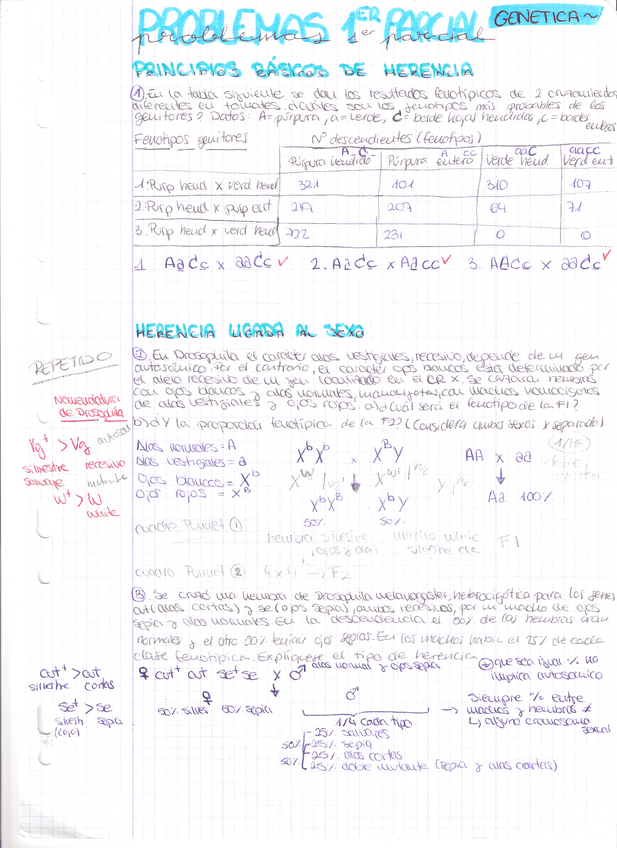 PROBLEMAS 1ER PARCIAL
problemas 1er parcial
GENETICA~
PRINCIPIOS BÁSICOS DE HERENCIA
① En la tabla siguiente se dan los resultados fenotípicos de 2 cruzamientos
diferentes en tomates. ¿cuáles son los genotipos más probables de los
genitores? Datos: A=púrpura, a=verde, C=borde hojas hendidas, c=bordes
enteros
Fenotipos genitores
Nº descendientes (fenotipos)
A_C_
Púrpura hendido
A_cc
Púrpura entero
aaC_
Verde hend
aacc
Verd ent
1. Purp hend x verd hend 321 101 310 107
2. Purp hend x purp ent 219 207 64 71
3. Purp hend x verd hend 722 231 0 0
1. AaCc x aaCc ✓ 2. AaCc x Aacc ✓ 3. AACc x aaCc ✓
HERENCIA LIGADA AL SEXO
REPETIDO
② En Drosophila el carácter alas vestigiales, recesivo, depende de un gen
autosómico. Por el contrario, el carácter ojos blancos está determinado por
el alelo recesivo de un gen localizado en el CR X. Se cruzaron hembras
con ojos blancos y alas normales, homocigotas, con machos homocigotos
de alas vestigiales y ojos rojos. a) cuál será el fenotipo de la F1?
b) ¿d Y la proporción fenotípica de la F2? (Considera ambos sexos x separado)
(1/16)
Nomenclatura
de Drosophila
Vg+ > Vg autosom
silvestre recesivo
salvaje mutante
w+ > w
white
Alas normales = A
Alas vestigiales = a
Ojos blancos = Xb
Ojos rojos = XB
XbXb x XBY
AA x aa
XbXB XbY
Aa 100%
50% 50%
cuadro Punnet ①
hembra silvestre
macho white
F1
cuadro Punnet ② 4x4 → F2
③ Se cruzó una hembra de Drosophila melanogaster, heterocigótica para los genes
cut (alas cortas) y se (ojos sepia), ambos recesivos, por un macho de ojos
sepia y alas normales. En la descendencia el 50% de las hembras eran
normales y el otro 50% tenían ojos sepias. En los machos había el 25% de cada
clase fenotípica. Explíquese el tipo de herencia
cut+ > cut
silvestre cortas
se+ > se
silvestr sepia
(ojo)
♀ cut+ cut se+se x ♂ alas normal y ojos sepia
que sea igual % no
implica autosómico
♀
50% silves 50% sepia
♂
1/4 cada tipo
→ Siempre % entre
machos y hembras ≠
↳ algún cromosoma
sexual
50%
25% salvajes
25% sepia
50%
25% alas cortas
25% doble mutante (sepia y alas cortas)